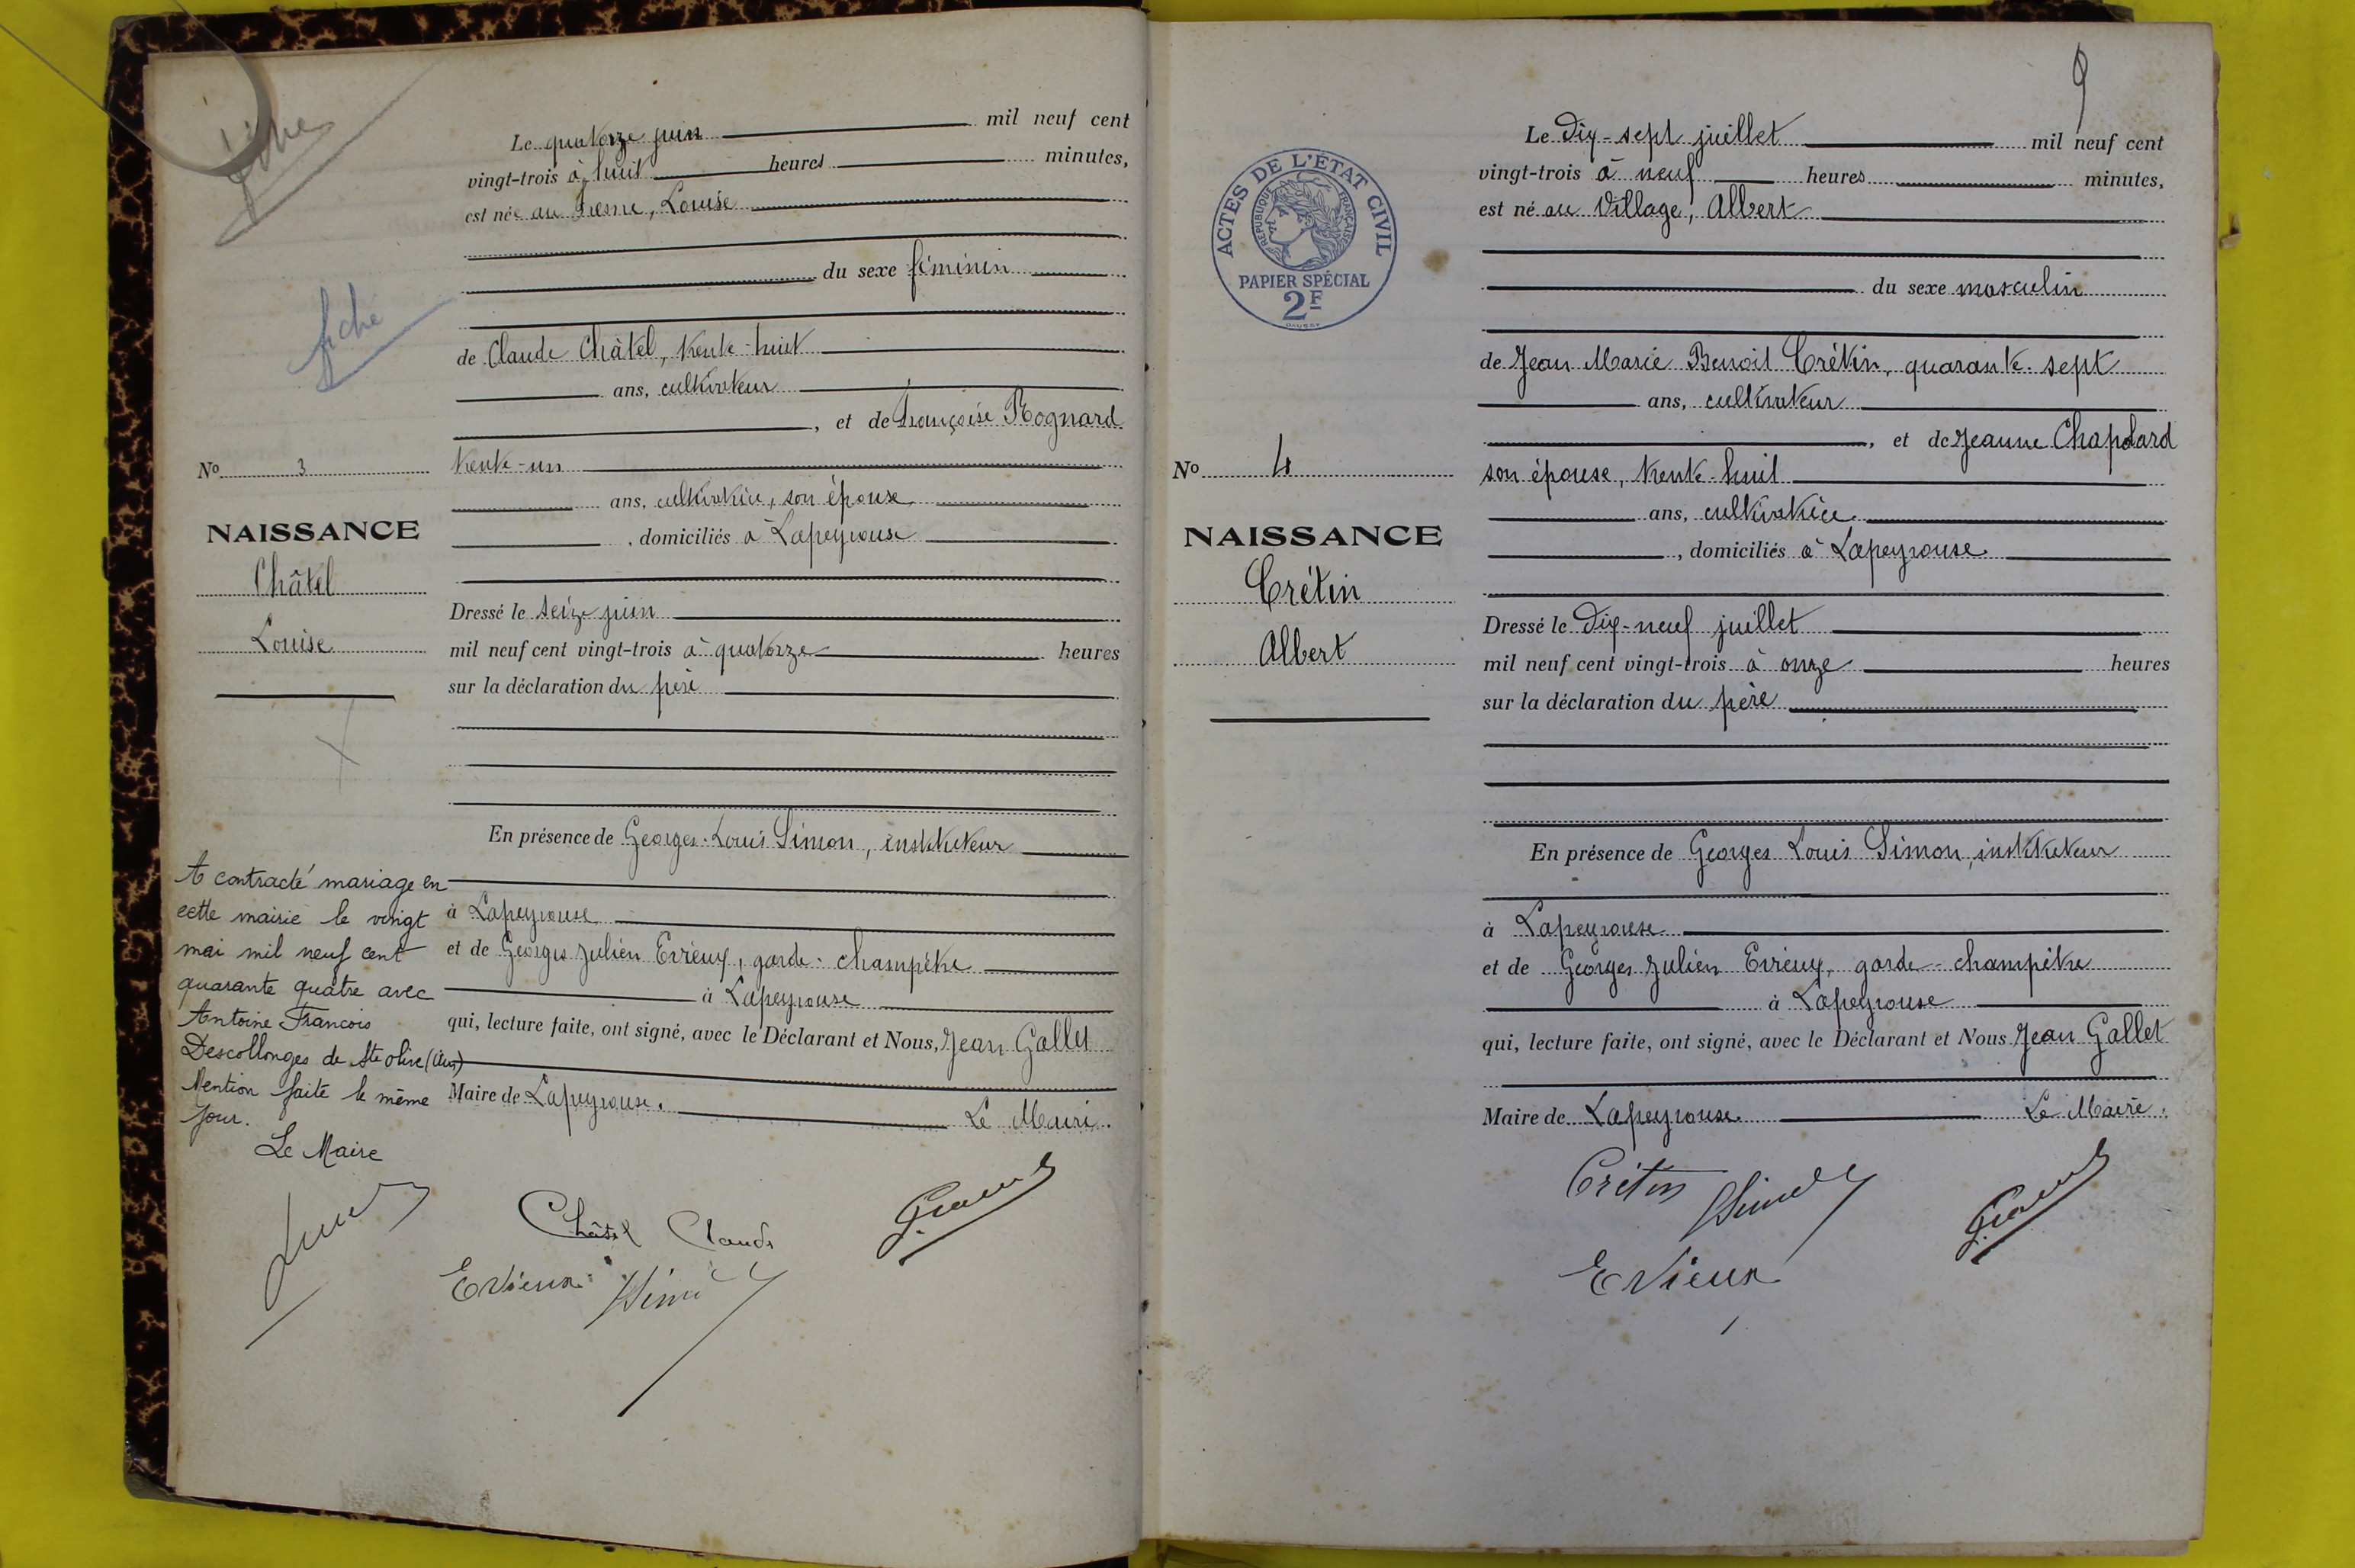 fiche
fiche
Le quatorze juin mil neuf cent
vingt-trois à huit heures minutes,
est née au Fresne, Louise
du sexe féminin
de Claude Châtel, trente-huit
ans, cultivateur
, et de Françoise Rognard
trente-un
ans, cultivatrice, son épouse
, domiciliés à Lapeyrouse
No 3
NAISSANCE
Châtel
Louise
Dressé le seize juin
mil neuf cent vingt-trois à quatorze heures
sur la déclaration du père
En présence de Georges-Louis Simon, instituteur
à Lapeyrouse
et de Georges Julien Evieux, garde-champêtre
à Lapeyrouse
qui, lecture faite, ont signé, avec le Déclarant et Nous, Jean Gallet
Maire de Lapeyrouse. Le Maire.
A contracté mariage en
cette mairie le vingt
mai mil neuf cent
quarante quatre avec
Antoine Francois
Descollonges de Ste olive (Ain)
Mention faite le même
jour.
Le Maire
Châtel Claude
Evieux
9
ACTES DE L'ÉTAT CIVIL
RÉPUBLIQUE FRANÇAISE
PAPIER SPÉCIAL
2F
Le Dix-sept juillet mil neuf cent
vingt-trois à neuf heures minutes,
est né au Village, Albert
du sexe masculin
de Jean Marie Benoit Crétin, quarante-sept
ans, cultivateur
, et de Jeanne Chapolard
son épouse, trente-huit
ans, cultivatrice
, domiciliés à Lapeyrouse
No 4
NAISSANCE
Crétin
Albert
Dressé le Dix-neuf juillet
mil neuf cent vingt-trois à onze heures
sur la déclaration du père
En présence de Georges Louis Simon, instituteur
à Lapeyrouse
et de Georges Julien Evieux, garde-champêtre
à Lapeyrouse
qui, lecture faite, ont signé, avec le Déclarant et Nous Jean Gallet
Maire de Lapeyrouse. Le Maire.
Crétin
Evieux